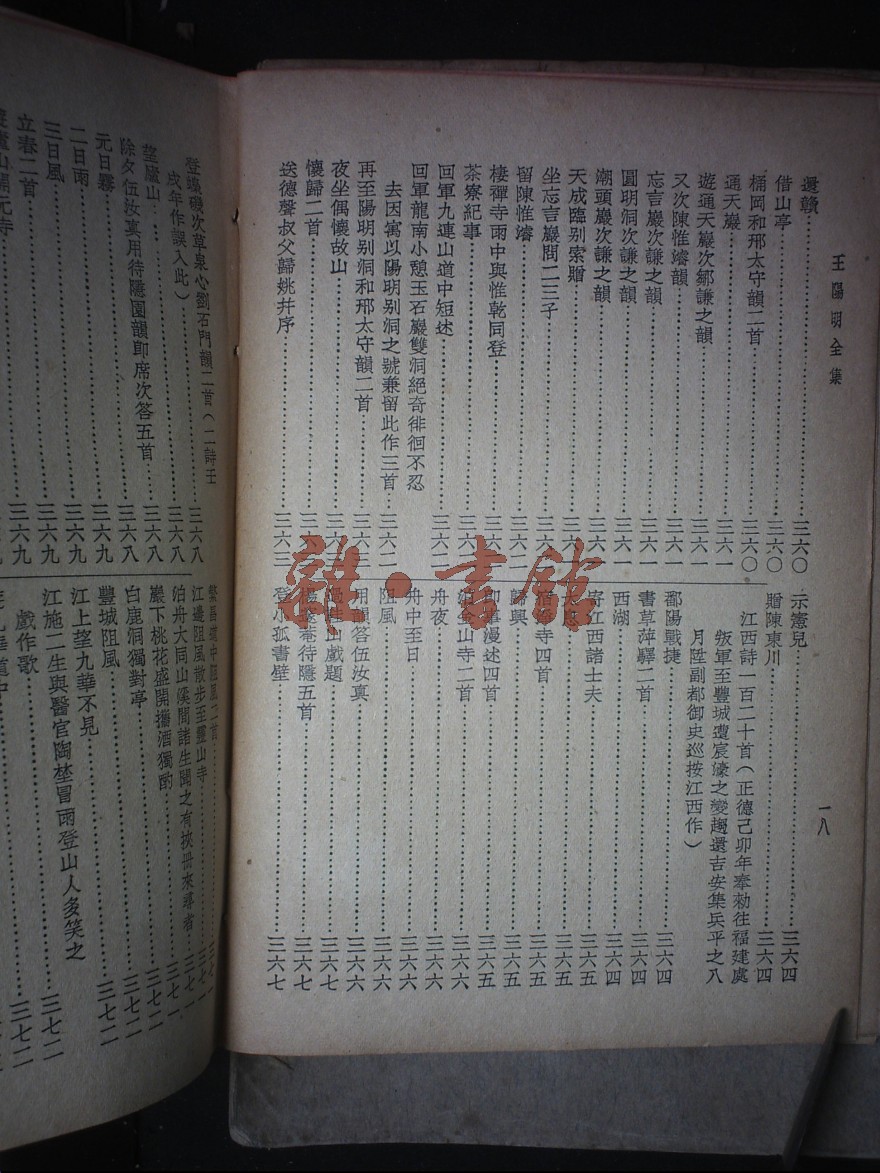 王陽明全集
一八
還贛……三六〇
借山亭……三六〇
桶岡和邢太守韻二首……三六〇
通天巖……三六一
遊通天巖次鄒謙之韻……三六一
又次陳惟濬韻……三六一
忘言巖次謙之韻……三六一
圓明洞次謙之韻……三六一
潮頭巖次謙之韻……三六一
天成臨別索贈……三六
坐忘言巖問二三子……三六
留陳惟濬……三六
棲禪寺雨中與惟乾同登……三六
茶寮紀事……三六
回軍九連山道中短述……三六二
回軍龍南小憩玉石巖雙洞絕奇徘徊不忍
去因寓以陽明別洞之號兼留此作三首……三六二
再至陽明別洞和邢太守韻二首……三六
夜坐偶懷故山……三六
懷歸二首……三六
送德聲叔父歸姚并序……三六三
示憲兒……三六四
贈陳東川……三六四
江西詩一百二十首（正德己卯年奉勑往福建處
叛軍至豐城遭宸濠之變趨還吉安集兵平之八
月陞副都御史巡按江西作）
鄱陽戰捷……三六四
書草萍驛二首……三六四
西湖……三六四
寄江西諸士夫……三六五
……三六五
寺四首……三六五
歸興……三六五
即事漫述四首……三六五
金山寺二首……三六六
舟夜……三六六
舟中至日……三六六
阻風……三六六
用韻答伍汝真……三六六
山戲題……三六七
待隱五首……三六七
登小孤書壁……三六七
登蟂磯次草泉心劉石門韻二首（二詩壬
戌年作誤入此）……三六八
望廬山……三六八
除夕伍汝真用待隱園韻即席次答五首……三六八
元日霧……三六九
二日雨……三六九
三日風……三六九
立春二首……三六九
廬山開元寺
中阻風二首……三七一
江邊阻風散步至靈山寺……三七一
泊舟大同山溪間諸生聞之有挾冊來尋者……三七一
巖下桃花盛開攜酒獨酌……三七二
白鹿洞獨對亭……三七二
豐城阻風……三七二
江上望九華不見……三七二
江施二生與醫官陶埜冒雨登山人多笑之
戲作歌……三七二
九華道中
雜·書館